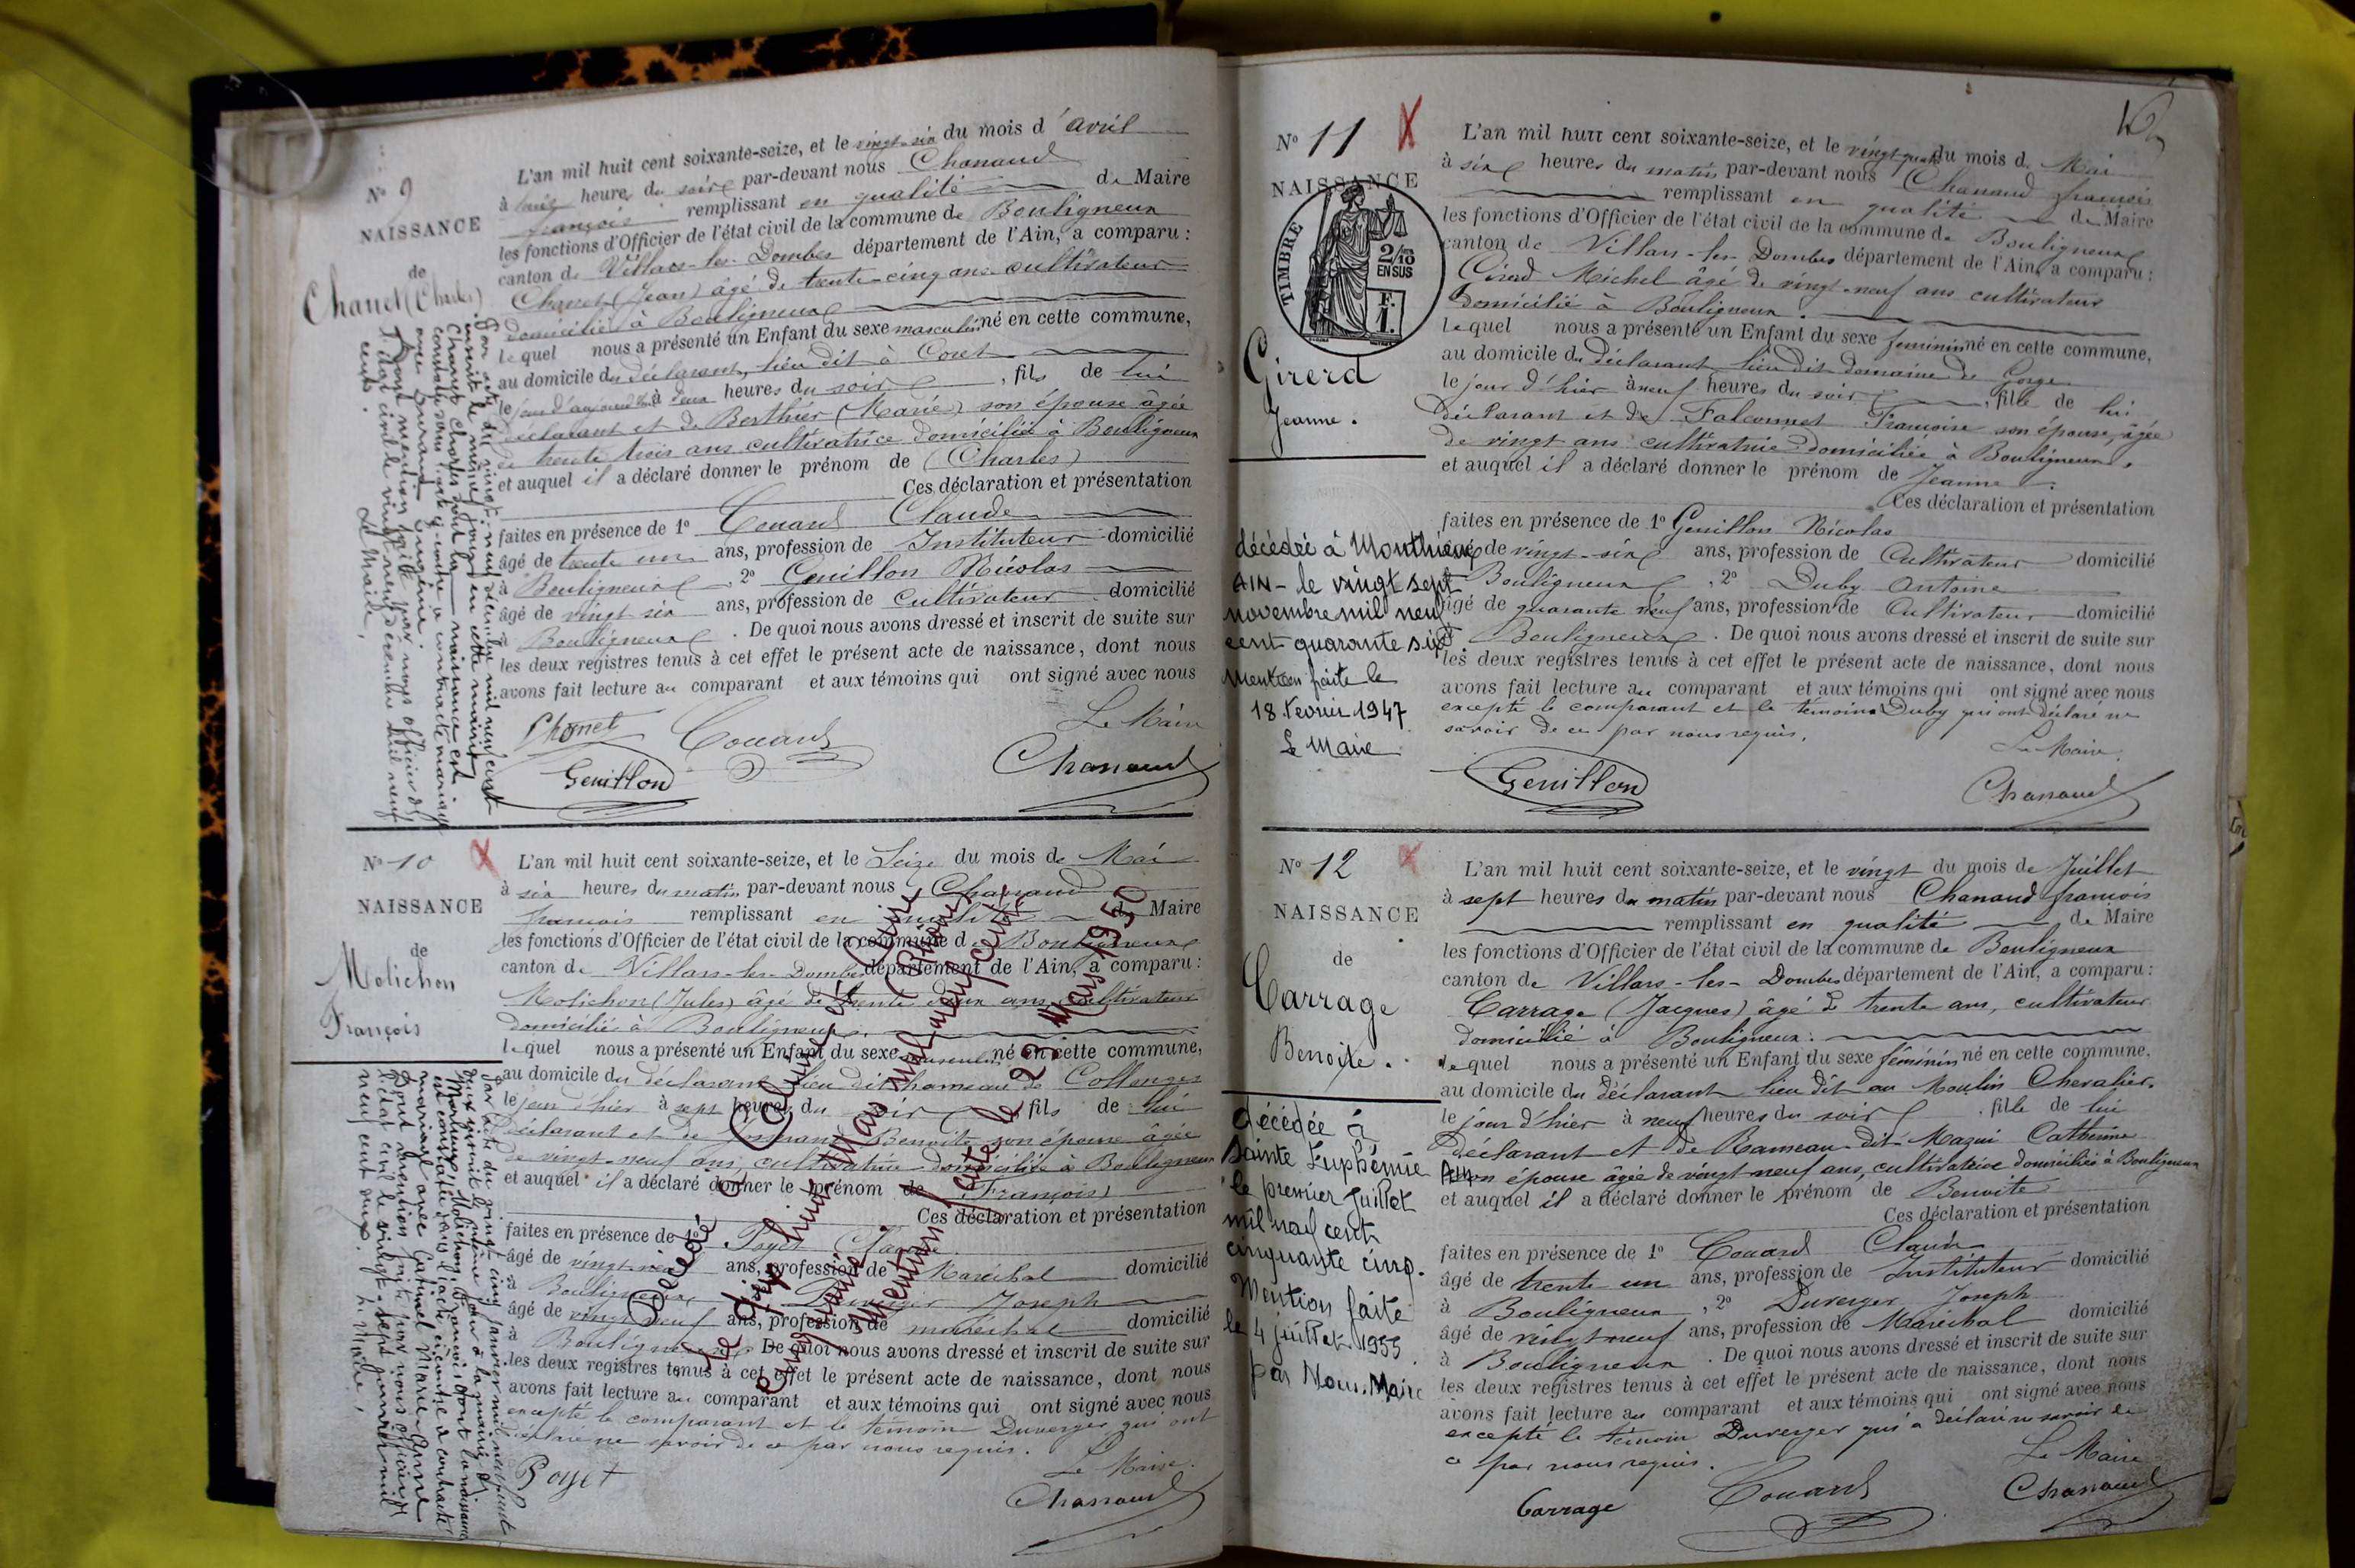 Nº 9
NAISSANCE
de
Chanel (Charles)
L'an mil huit cent soixante-seize, et le vingt-six du mois d'avril
à trois heures du soir par-devant nous Chanaud
françois remplissant en qualité de Maire
les fonctions d'Officier de l'état civil de la commune de Bouligneux
canton de Villars-les-Dombes département de l'Ain, a comparu :
Chanel (Jean) âgé de trente-cinq ans cultivateur
domicilié à Bouligneux
lequel nous a présenté un Enfant du sexe masculin né en cette commune,
au domicile du déclarant, lieu dit à Coret
le jour d'aujourd'hui à deux heures du soir, fils de lui
déclarant et de Berthier (Marie) son épouse âgée
de trente trois ans cultivatrice domiciliée à Bouligneux
et auquel il a déclaré donner le prénom de (Charles)
Ces déclaration et présentation
faites en présence de 1º Couard Claude
âgé de trente un ans, profession de Instituteur domicilié
à Bouligneux, 2º Genillon Nicolas
âgé de vingt six ans, profession de cultivateur domicilié
à Bouligneux. De quoi nous avons dressé et inscrit de suite sur
les deux registres tenus à cet effet le présent acte de naissance, dont nous
avons fait lecture au comparant et aux témoins qui ont signé avec nous
Le Maire
Chanet Couard
Genillon Chanaud
Par acte du vingt-neuf décembre mil neuf cent
inscrit le même jour en cette mairie,
Chanel Charles dont la naissance est
constatée dans l'acte ci-contre a contracté mariage
avec Eugénie.
Dont mention faite par nous officier de
l'état civil le vingt neuf décembre mil neuf
cents.
Le Maire,
Nº 10
NAISSANCE
de
Molichon
François
L'an mil huit cent soixante-seize, et le Seize du mois de Mai
à six heures du matin par-devant nous Chanaud
françois remplissant en qualité de Maire
les fonctions d'Officier de l'état civil de la commune de Bouligneux
canton de Villars-les-Dombes département de l'Ain, a comparu :
Molichon (Jules) âgé de trente deux ans cultivateur
domicilié à Bouligneux.
lequel nous a présenté un Enfant du sexe masculin né en cette commune,
au domicile du déclarant lieu dit hameau de Collonges
le jour d'hier à sept heures du soir fils de lui
déclarant et de Benoite son épouse âgée
de vingt-neuf ans, cultivatrice domiciliée à Bouligneux
et auquel il a déclaré donner le prénom de (François)
Ces déclaration et présentation
faites en présence de 1º Poyet Claude
âgé de vingt-six ans, profession de Maréchal domicilié
à Bouligneux Duverger Joseph
âgé de vingt neuf ans, profession de maréchal domicilié
à Bouligneux De quoi nous avons dressé et inscrit de suite sur
les deux registres tenus à cet effet le présent acte de naissance, dont nous
avons fait lecture au comparant et aux témoins qui ont signé avec nous
excepté le comparant et le témoin Duverger qui ont
déclaré ne savoir de ce par nous requis.
Le Maire.
Poyet Chanaud
Par acte du vingt cinq janvier mil neuf cent
deux inscrit le même jour à la mairie de
Marlieux, Molichon François dont la naissance
est constatée dans l'acte ci-contre a contracté
mariage avec Gatinel Marie
Dont mention faite par nous officier de
l'état civil le vingt-sept janvier mil
neuf cent deux. Le Maire,
Décédé à Caluire et Cuire (Rhône)
le dix huit Mars mil neuf cent
cinquante.
Mention faite le 23 Mars 1950
Nº 11
NAISSANCE
TIMBRE
2/10
EN SUS
F.
1.
Girerd
Jeanne.
L'an mil huit cent soixante-seize, et le vingt-quatre du mois de Mai
à six heures du matin par-devant nous Chanaud françois
remplissant en qualité de Maire
les fonctions d'Officier de l'état civil de la commune de Bouligneux
canton de Villars-les-Dombes département de l'Ain, a comparu :
Girerd Michel âgé de vingt-neuf ans cultivateur
domicilié à Bouligneux.
lequel nous a présenté un Enfant du sexe féminin né en cette commune,
au domicile du déclarant, lieu dit domaine de Gorge
le jour d'hier à neuf heures du soir, fille de lui
déclarant et de Falconnet Françoise son épouse, âgée
de vingt ans cultivatrice domiciliée à Bouligneux,
et auquel il a déclaré donner le prénom de Jeanne.
Ces déclaration et présentation
faites en présence de 1º Genillon Nicolas
âgé de vingt-six ans, profession de Cultivateur domicilié
à Bouligneux, 2º Duby Antoine
âgé de quarante neuf ans, profession de Cultivateur domicilié
à Bouligneux. De quoi nous avons dressé et inscrit de suite sur
les deux registres tenus à cet effet le présent acte de naissance, dont nous
avons fait lecture au comparant et aux témoins qui ont signé avec nous
excepté le comparant et le témoins Duby qui ont déclaré ne
savoir de ce par nous requis.
Le Maire.
Genillon Chanaud
décédée à Monthieux
AIN - le vingt sept
novembre mil neuf
cent quarante six.
Mention faite le
18 Février 1947
Le Maire
Nº 12
NAISSANCE
de
Carrage
Benoite.
L'an mil huit cent soixante-seize, et le vingt du mois de Juillet
à sept heures du matin par-devant nous Chanaud françois
remplissant en qualité de Maire
les fonctions d'Officier de l'état civil de la commune de Bouligneux
canton de Villars-les-Dombes département de l'Ain, a comparu :
Carrage (Jacques) âgé de trente ans, cultivateur
domicilié à Bouligneux.
lequel nous a présenté un Enfant du sexe féminin né en cette commune,
au domicile du déclarant lieu dit au Moulin Chevalier,
le jour d'hier à neuf heures du soir, fille de lui
déclarant et de Rameau dit Mazui Catherine
son épouse âgée de vingt neuf ans, cultivatrice domiciliée à Bouligneux
et auquel il a déclaré donner le prénom de Benoite
Ces déclaration et présentation
faites en présence de 1º Couard Claude
âgé de trente un ans, profession de Instituteur domicilié
à Bouligneux, 2º Duverger Joseph
âgé de vingt neuf ans, profession de Maréchal domicilié
à Bouligneux. De quoi nous avons dressé et inscrit de suite sur
les deux registres tenus à cet effet le présent acte de naissance, dont nous
avons fait lecture au comparant et aux témoins qui ont signé avec nous
excepté le témoin Duverger qui a déclaré ne savoir de
ce par nous requis.
Le Maire
Carrage Couard Chanaud
décédée à
Sainte Euphémie
AIN
le premier Juillet
mil neuf cent
cinquante cinq.
Mention faite
le 4 juillet 1955
par Nous, Maire